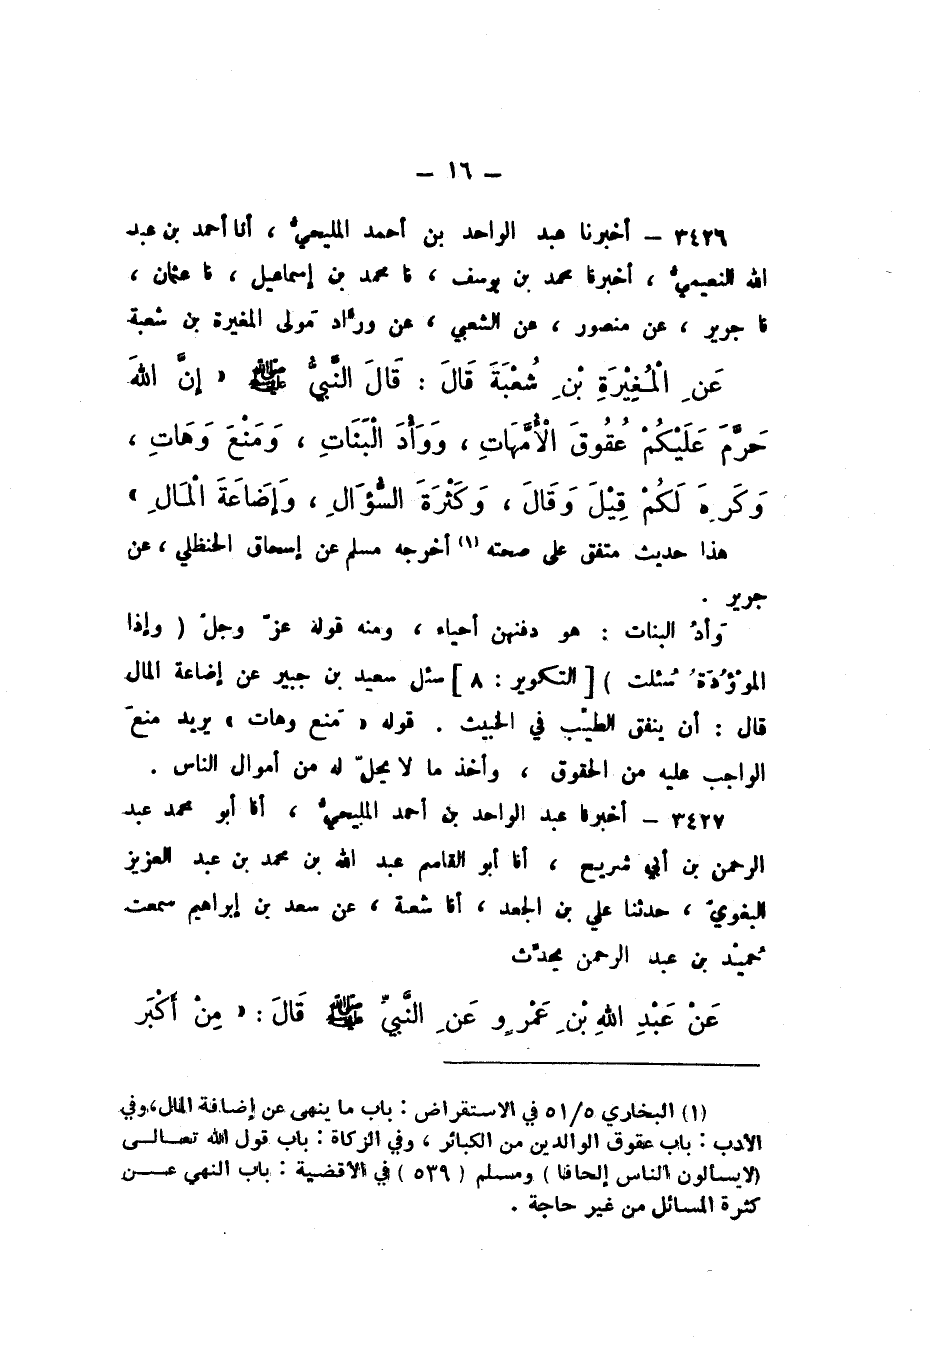 – ١٦ –
٣٤٢٦ – أخبرنا عبد الواحد بن أحمد المليحيُّ ، أنا أحمد بن عبد
الله النعيميُّ ، أخبرنا محمد بن يوسف ، نا محمد بن إسماعيل ، نا عثمان ،
نا جرير ، عن منصور ، عن الشعبي ، عن ورَّاد مَولى المغيرة بن شعبة
عَنِ الْمُغِيْرَةِ بْنِ شُعْبَةَ قَالَ : قَالَ النَّبِيُّ ﷺ « إِنَّ اللهَ
حَرَّمَ عَلَيْكُمْ عُقُوقَ الْأُمَّهَاتِ ، وَوَأْدَ الْبَنَاتِ ، وَمَنْعَ وَهَاتِ ،
وَكَرِهَ لَكُمْ قِيْلَ وَقَالَ ، وَكَثْرَةَ السُّؤَالِ ، وَإِضَاعَةَ الْمَالِ »
هذا حديث متفق على صحته (١) أخرجه مسلم عن إسحاق الحنظلي ، عن
جرير .
وَأدُ البنات : هو دفنهن أحياء ، ومنه قوله عزّ وجلّ ( وإذا
الموْؤُدَةُ سُئلت ) [ التكوير : ٨ ] سئل سعيد بن جبير عن إضاعة المال
قال : أن ينفق الطيّب في الخبيث . قوله « مَنع وهات » يريد منعَ
الواجب عليه من الحقوق ، وأخذ ما لا يحلّ له من أموال الناس .
٣٤٢٧ – أخبرنا عبد الواحد بن أحمد المليحيُّ ، أنا أبو محمد عبد
الرحمن بن أبي شريح ، أنا أبو القاسم عبد الله بن محمد بن عبد العزيز
البغويّ ، حدثنا علي بن الجعد ، أنا شعبة ، عن سعد بن إبراهيم سمعت
حُميْد بن عبد الرحمن يحدّث
عَنْ عَبْدِ اللهِ بْنِ عَمْرٍو عَنِ النَّبِيِّ ﷺ قَالَ : « مِنْ أَكْبَرِ
(١) البخاري ٥١/٥ في الاستقراض : باب ما ينهى عن إضافة المال ، وفي
الأدب : باب عقوق الوالدين من الكبائر ، وفي الزكاة : باب قول الله تعـــالــى
(لايسألون الناس إلحافا ) ومسلم ( ٥٣٩ ) في الأقضية : باب النهي عــــن
كثرة المسائل من غير حاجة .